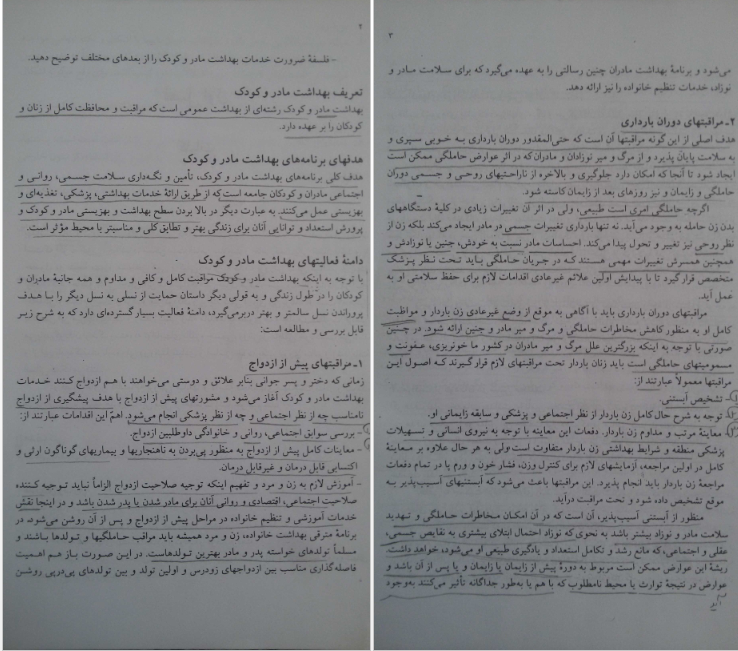 ۲
- فلسفهٔ ضرورت خدمات بهداشت مادر و کودک را از بعدهای مختلف توضیح دهید.
تعریف بهداشت مادر و کودک
بهداشت مادر و کودک رشته‌ای از بهداشت عمومی است که مراقبت و محافظت کامل از زنان و
کودکان را بر عهده دارد.
هدفهای برنامه‌های بهداشت مادر و کودک
هدف کلی برنامه‌های بهداشت مادر و کودک، تأمین و نگه‌داری سلامت جسمی، روانی و
اجتماعی مادران و کودکان جامعه است که از طریق ارائهٔ خدمات بهداشتی، پزشکی، تغذیه‌ای و
بهزیستی عمل می‌کنند. به عبارت دیگر در بالا بردن سطح بهداشت و بهزیستی مادر و کودک و
پرورش استعداد و توانایی آنان برای زندگی بهتر و تطابق کلی و مناسبتر با محیط مؤثر است.
دامنهٔ فعالیتهای بهداشت مادر و کودک
با توجه به اینکه بهداشت مادر و کودک مراقبت کامل و کافی و مداوم و همه جانبهٔ مادران و
کودکان را در طول زندگی و به قولی دیگر داستان حمایت از نسلی به نسل دیگر را با هدف
پروراندن نسل سالمتر و بهتر دربرمی‌گیرد، دامنهٔ فعالیت بسیار گسترده‌ای دارد که به شرح زیر
قابل بررسی و مطالعه است:
۱ـ مراقبتهای پیش از ازدواج
زمانی که دختر و پسر جوانی بنابر علائق و دوستی می‌خواهند با هم ازدواج کنند خدمات
بهداشت مادر و کودک آغاز می‌شود و مشورتهای پیش از ازدواج با هدف پیشگیری از ازدواج
نامناسب چه از نظر اجتماعی و چه از نظر پزشکی انجام می‌شود. اهمّ این اقدامات عبارتند از:
- بررسی سوابق اجتماعی، روانی و خانوادگی داوطلبین ازدواج.
- معاینات کامل پیش از ازدواج به منظور پی‌بردن به ناهنجاریها و بیماریهای گوناگون ارثی و
اکتسابی قابل درمان و غیرقابل درمان.
- آموزش لازم به زن و مرد و تفهیم اینکه توجیه صلاحیت ازدواج الزاماً نباید توجیه کننده
صلاحیت اجتماعی، اقتصادی و روانی آنان برای مادر شدن یا پدر شدن باشد و در اینجا نقش
خدمات آموزشی و تنظیم خانواده در مراحل پیش از ازدواج و پس از آن روشن می‌شود. در
برنامهٔ مترقی بهداشت خانواده، زن و مرد همیشه باید مراقب حاملگیها و تولدها باشند و
مسلماً تولدهای خواسته پدر و مادر بهترین تولدهاست. در این صورت باز هم اهمیت
فاصله‌گذاری مناسب بین ازدواجهای زودرس و اولین تولد و بین تولدهای پی‌درپی روشن
۳
می‌شود و برنامهٔ بهداشت مادران چنین رسالتی را به عهده می‌گیرد که برای سلامت مادر و
نوزاد، خدمات تنظیم خانواده را نیز ارائه دهد.
۲ـ مراقبتهای دوران بارداری
هدف اصلی از این گونه مراقبتها آن است که حتی‌المقدور دوران بارداری به خوبی سپری و
به سلامت پایان پذیرد و از مرگ و میر نوزادان و مادران که در اثر عوارض حاملگی ممکن است
ایجاد شود تا آنجا که امکان دارد جلوگیری و بالاخره از ناراحتیهای روحی و جسمی دوران
حاملگی و زایمان و نیز روزهای بعد از زایمان کاسته شود.
اگرچه حاملگی امری است طبیعی، ولی در اثر آن تغییرات زیادی در کلیهٔ دستگاههای
بدن زن حامله به وجود می‌آید. نه تنها بارداری تغییرات جسمی در مادر ایجاد می‌کند بلکه زن از
نظر روحی نیز تغییر و تحول پیدا می‌کند. احساسات مادر نسبت به خودش، جنین یا نوزادش و
همچنین همسرش تغییرات مهمی هستند که در جریان حاملگی باید تحت نظر پزشک
متخصص قرار گیرد تا با پیدایش اولین علائم غیرعادی اقدامات لازم برای حفظ سلامتی او به
عمل آید.
مراقبتهای دوران بارداری باید با آگاهی به موقع از وضع غیرعادی زن باردار و مواظبت
کامل او به منظور کاهش مخاطرات حاملگی و مرگ و میر مادر و جنین ارائه شود. در چنین
صورتی با توجه به اینکه بزرگترین علل مرگ و میر مادران در کشور ما خونریزی، عفونت و
مسمومیتهای حاملگی است باید زنان باردار تحت مراقبتهای لازم قرار گیرند که اصول این
مراقبتها معمولاً عبارتند از:
- تشخیص آبستنی.
- توجه به شرح حال کامل زن باردار از نظر اجتماعی و پزشکی و سابقه زایمانی او.
- معاینهٔ مرتب و مداوم زن باردار. دفعات این معاینه با توجه به نیروی انسانی و تسهیلات
پزشکی منطقه و شرایط بهداشتی زن باردار متفاوت است ولی به هر حال علاوه بر معاینهٔ
کامل در اولین مراجعه، آزمایشهای لازم برای کنترل وزن، فشار خون و ورم پا در تمام دفعات
مراجعهٔ زن باردار باید انجام پذیرد. این مراقبتها باعث می‌شود که آبستنیهای آسیب‌پذیر به
موقع تشخیص داده شود و تحت مراقبت درآید.
منظور از آبستنی آسیب‌پذیر، آن است که در آن امکان مخاطرات حاملگی و تهدید
سلامت مادر و نوزاد بیشتر باشد به نحوی که نوزاد احتمال ابتلای بیشتری به نقایص جسمی،
عقلی و اجتماعی، که مانع رشد و تکامل استعداد و یادگیری طبیعی او می‌شود، خواهد داشت.
ریشهٔ این عوارض ممکن است مربوط به دورهٔ پیش از زایمان یا زایمان و یا پس از آن باشد و
عوارض در نتیجهٔ توارث یا محیط نامطلوب که با هم یا به‌طور جداگانه تأثیر می‌کنند به‌وجود
آید